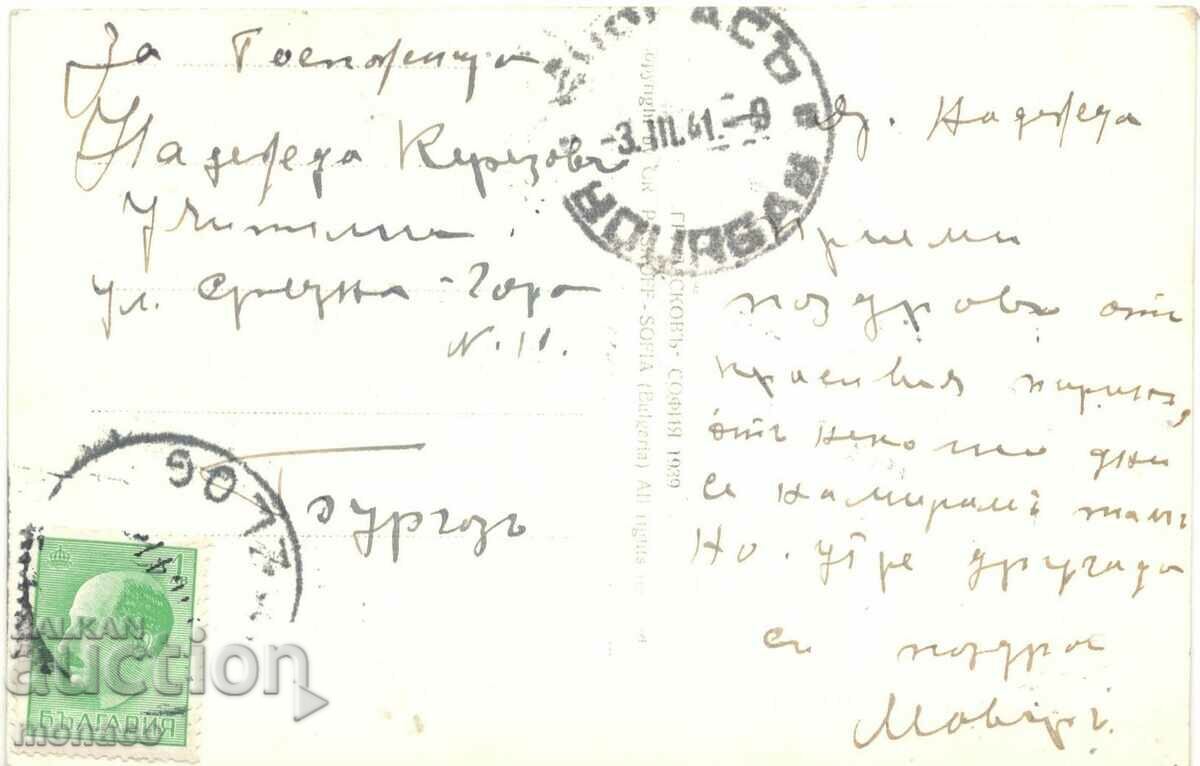 За Госпожица
Надежда Керезовъ
Учителка
ул. Средна-Гора
N. 11.
Бургазъ
БУРГАСЪ
-3.III.41.-9
BOURGAS
Надежда
Приеми
поздравъ отъ
красивия пиринъ,
отъ неколко дни
се намирамъ тамъ
Но утре другаде
съ поздрав
ГР. ПАСКОВЪ - СОФИЯ 1939
Copyright by GR. PASKOFF - SOFIA (Bulgaria) All rights
1
БЪЛГАРИЯ
BALKAN
auction
monaco